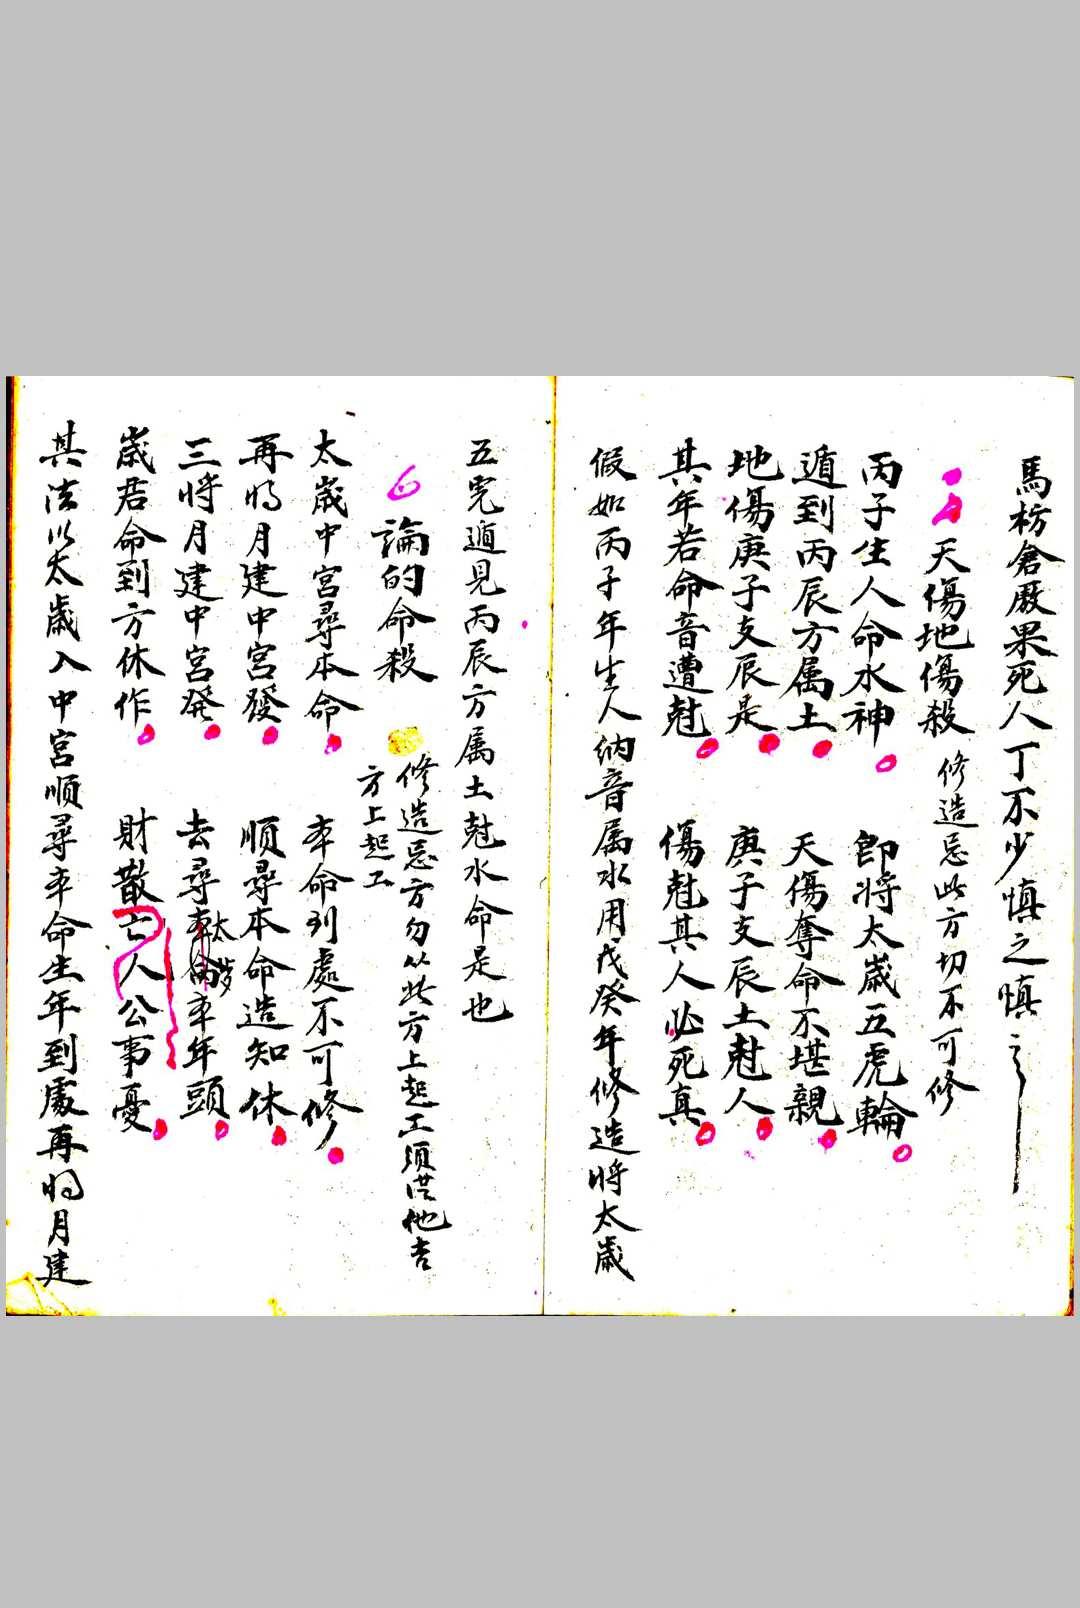 馬枋倉厫果死人丁不少慎之慎之
天傷地傷殺 修造忌此方切不可修
丙子生人命水神 即將太歲五虎輪
遁到丙辰方属土 天傷奪命不堪親
地傷庚子支辰是 庚子支辰土尅人
其年若命音遭尅 傷尅其人必死真
假如丙子年生人納音属水用戊癸年修造將太歲
五宄遁見丙辰方属土尅水命是也
論的命殺 修造忌方勿从此方上起工須從他吉
方上起工
太歲中宮尋本命 本命到處不可修
再将月建中宮發 順尋本命造知休
三將月建中宮発 去尋太歲本年頭
歲君命到方休作 財散亡人公事憂
其法以太歲入中宮順尋本命生年到處再将月建